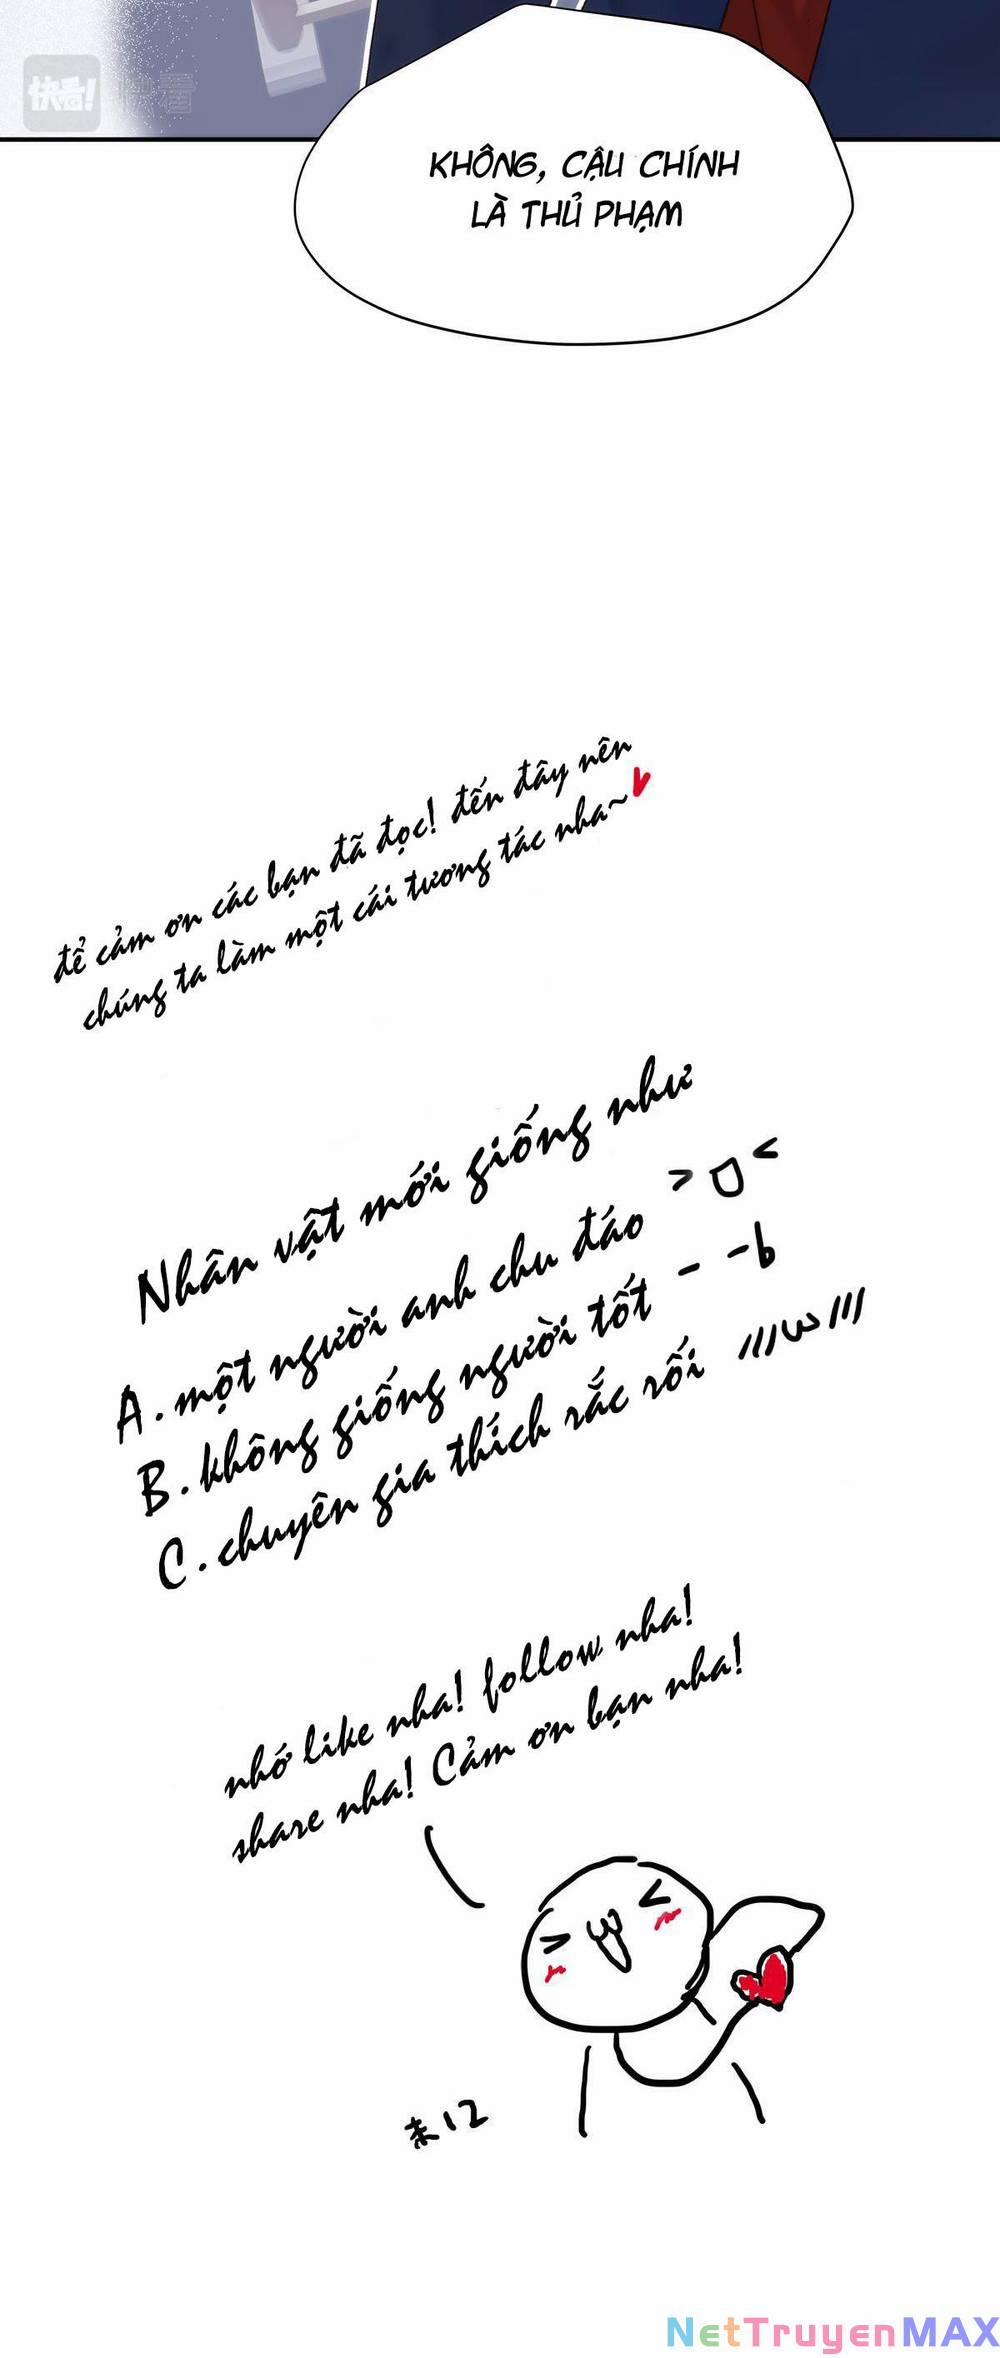 快看!
快看
KHÔNG, CẬU CHÍNH
LÀ THỦ PHẠM
để cảm ơn các bạn đã đọc! đến đây nên
chúng ta làm một cái tương tác nha~
Nhân vật mới giống như
A. một người anh chu đáo >O<
B. không giống người tốt - -b
C. chuyên gia thích rắc rối ///ω///
nhớ like nha! follow nha!
share nha! Cảm ơn bạn nha!
未12
NetTruyenMAX